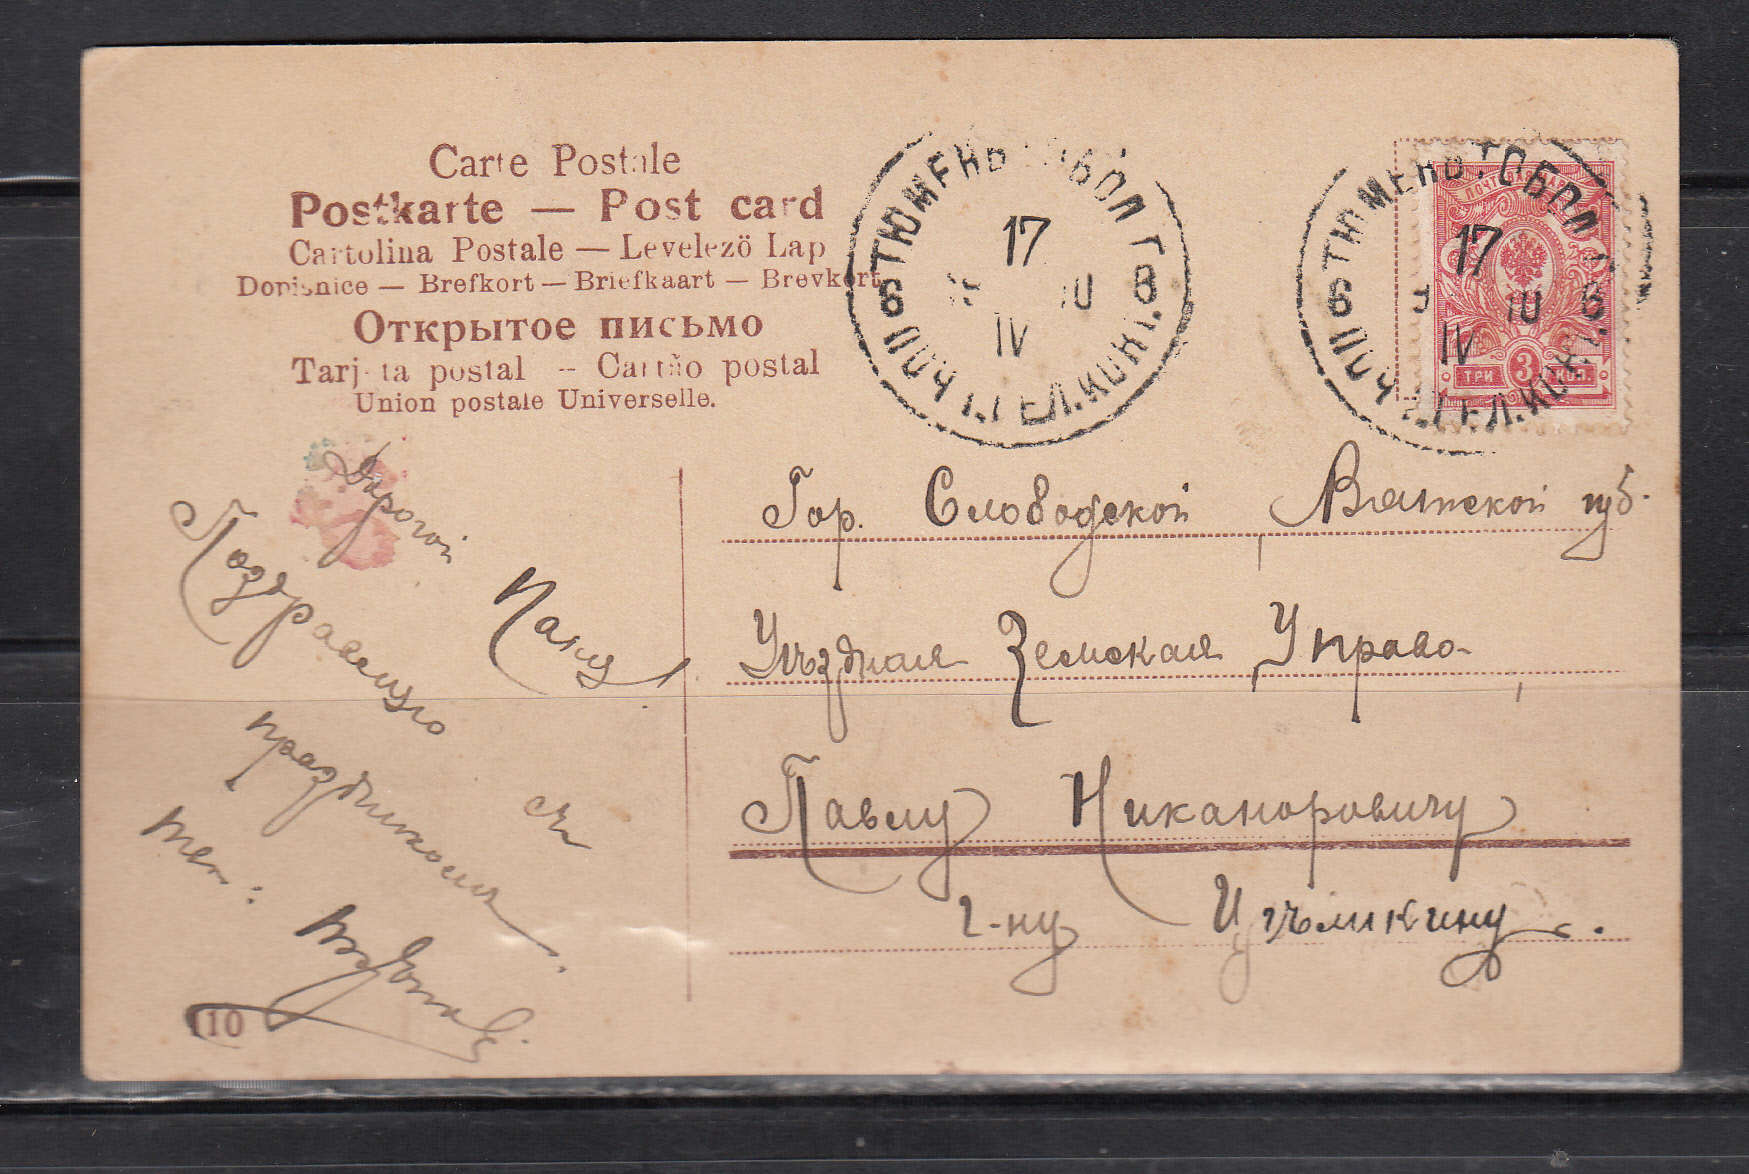 Carte Postale
Postkarte — Post card
Cartolina Postale — Levelezö Lap
Dopisnice — Brefkort — Briefkaart — Brevkort
Открытое письмо
Tarjeta postal — Cartão postal
Union postale Universelle.
ТЮМЕНЬ ТОБОЛ. Г.
6 17 IV 10 в
ПОЧТ. ТЕЛ. КОН.
ТЮМЕНЬ ТОБОЛ. Г.
6 17 IV 10 в
ПОЧТ. ТЕЛ. КОН.
ПОЧТОВАЯ МАРКА
ТРИ 3 КОП
Гор. Слободской Вятской губ.
Уѣздная Земская Управа
Павлу Никаноровичу
г-ну
Дорогой
Поздравляю съ
праздникомъ.
110